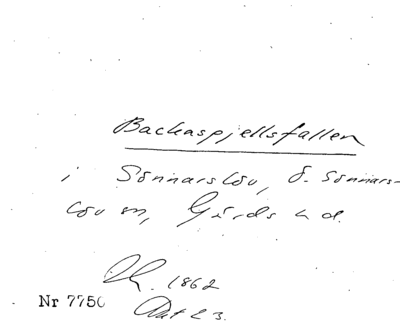 Backaspjellsfallen
i Sönnarslöv, Ö. Sönnars-
löv sn, Gärds hd.
1862
Nr 7750